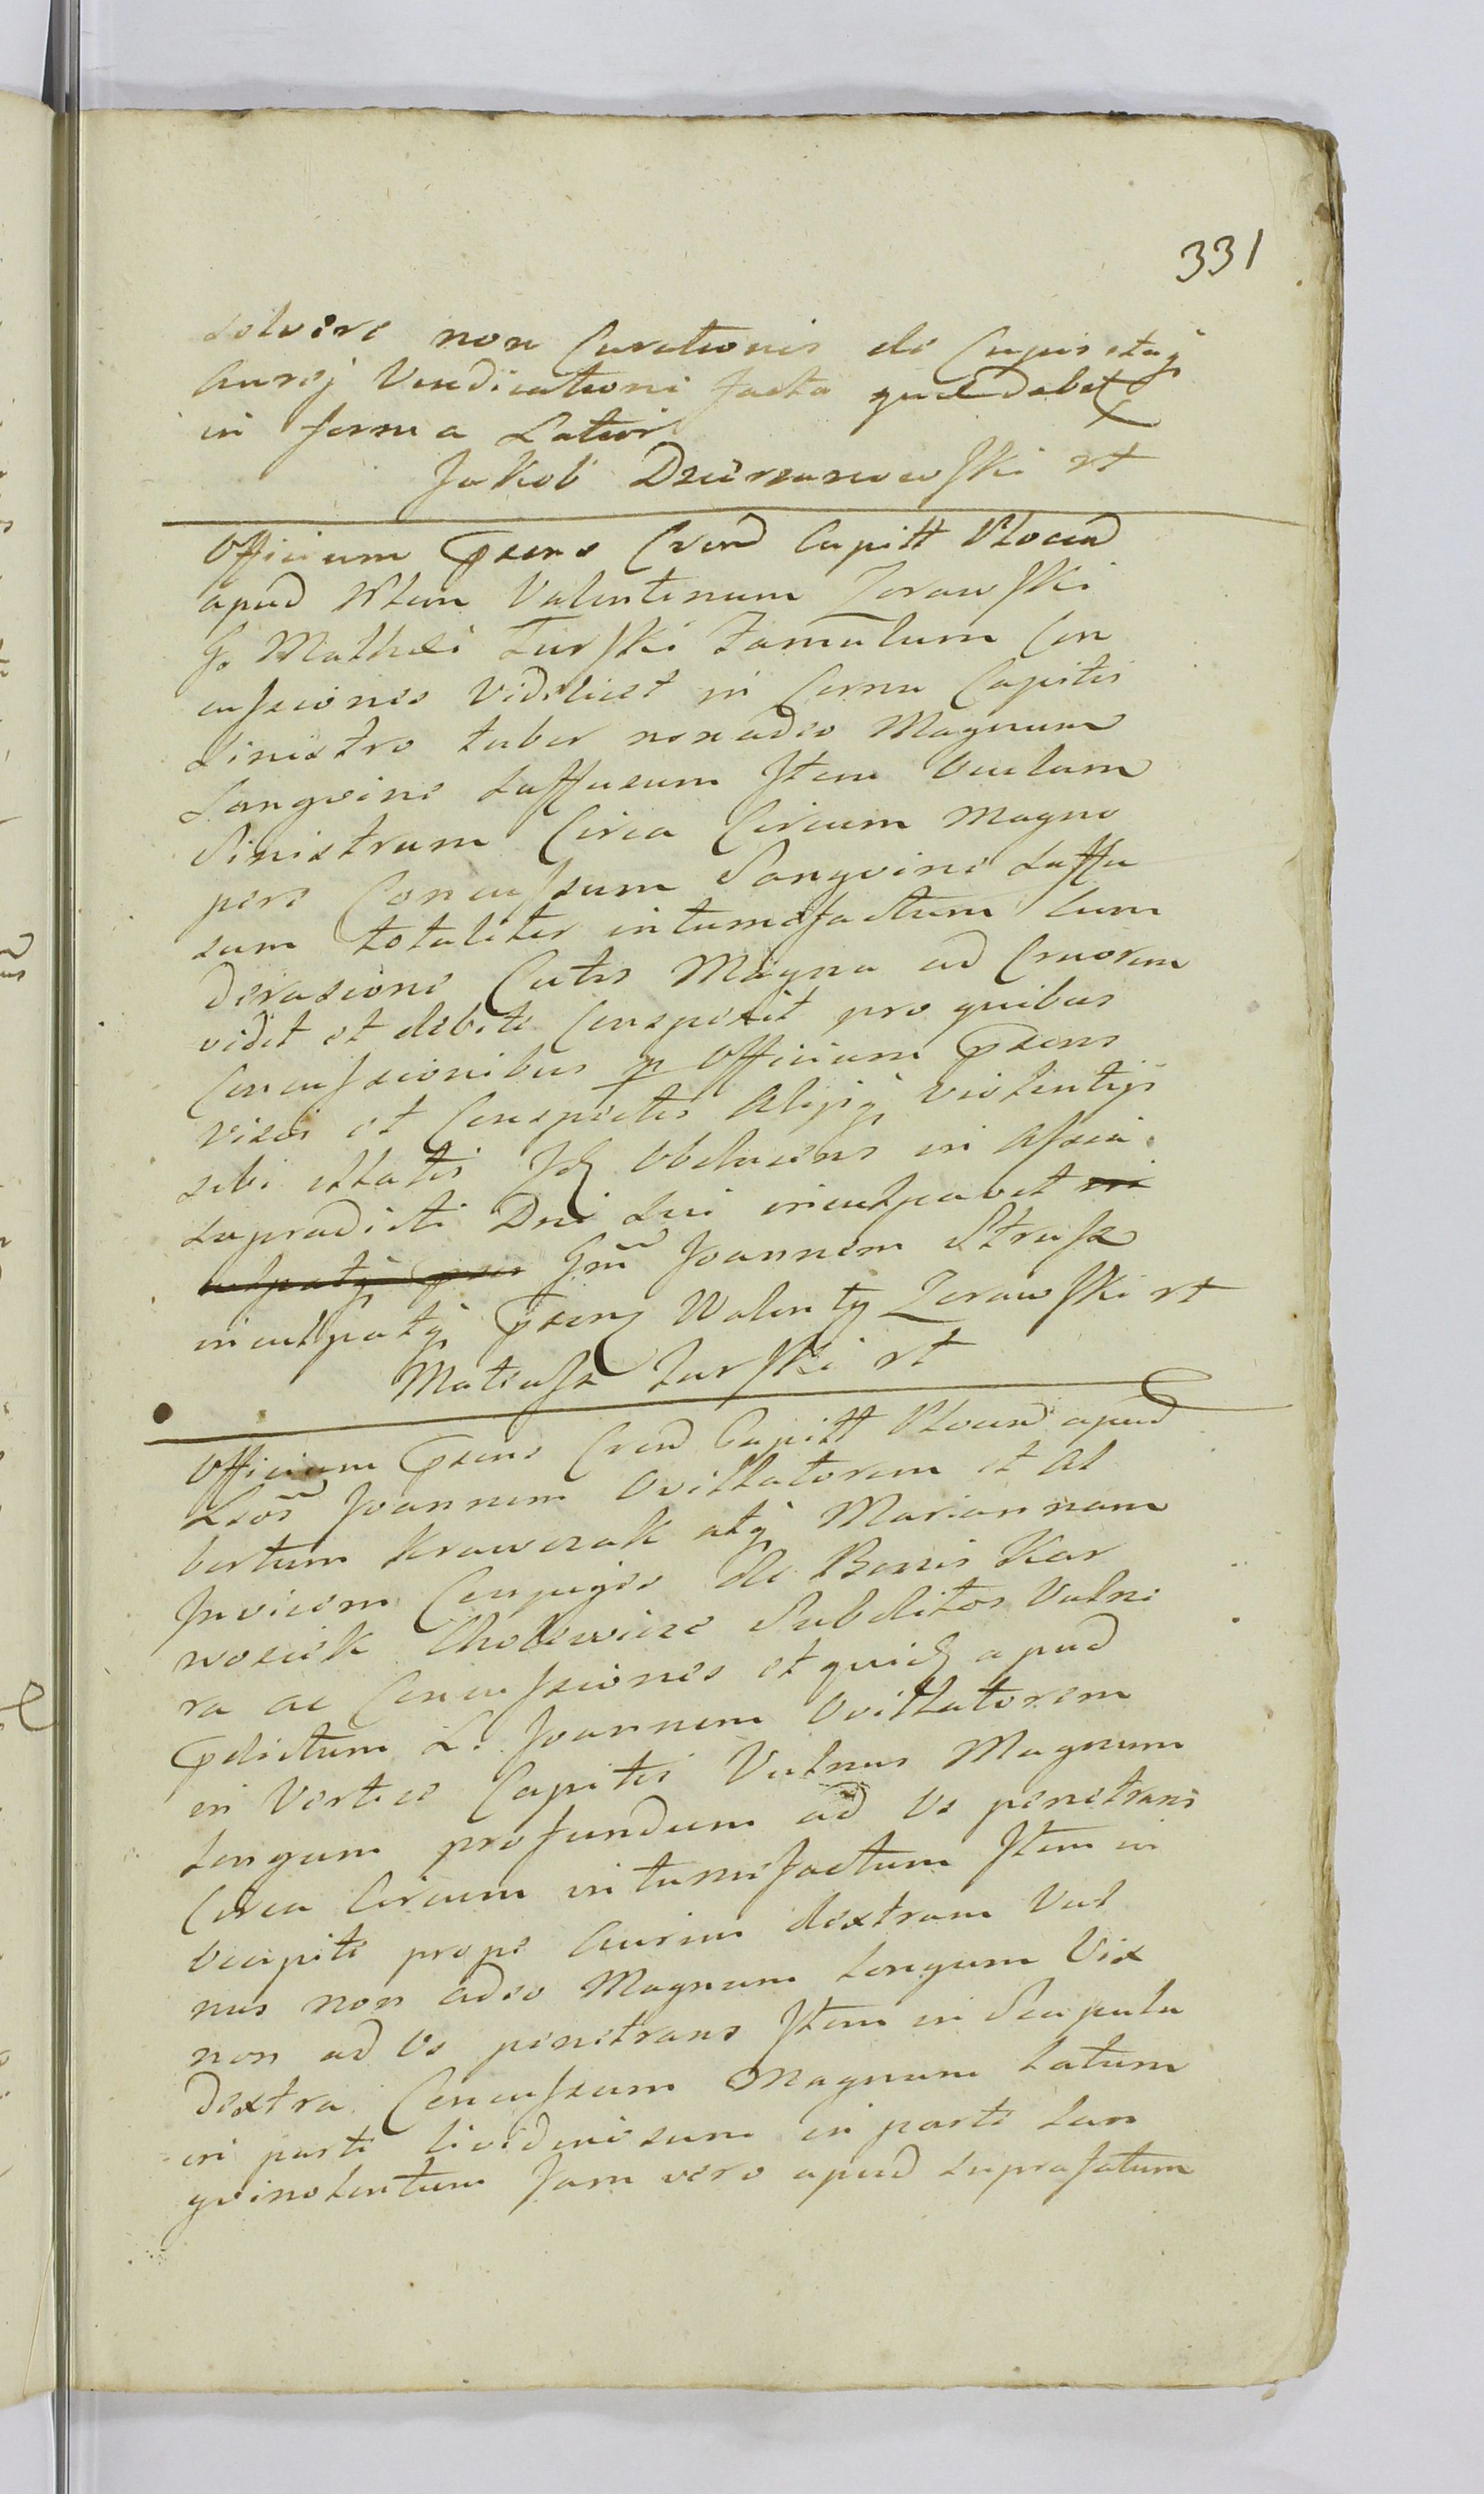 331
solvere non Curationis de Cujus etiaq
Aurej Vendicationi facta quae debet
in forma Latiori
Jakob Dziermanowski rt
Officium Praens Crend Capitt Plocen
apud Nlem Valentinum Zorawski
G. Mathei Turski Famulum Con
cussiones Videlicet in Cornu Capitis
Sinistro tuber non adeo Magnum
Sangvine Suffusum Item Oculum
Sinistrum Circa Circum Magno
pere Concussum Sangvine Suffu
sum totaliter intumefactum Cum
Derasione Cutis Magna ad Cruorem
vidit et debite Conspexit pro quibus
Concussionibus p Officium Praens
visis et Conspectis Alysq violentijs
sibi illatis Idq Obducens in Assia
supradicti Dni Sui inculpavit in
culpatq prae Gm̃ Joannem Strusz
inculpatq Praens Walenty Zorawski rt
Matiasz Turski rt
Officium Praens Crend Capitt Plocen apud
Lsos̃ Joannem Ovillatorem et Al
bertum Krawczak atq Mariannam
Invicem Conjuges de Bonis Kar
wosiek Cholewice Subditos Vulne
ra ac Concussiones et quidq apud
Pdictum L. Joannem Ovillatorem
in Vertice Capitis Vulnus Magnum
Longum profundum ad Os penetrans
Circa Circum intumefactum Item in
Occipite prope Aurim dextram Vul
nus non adeo Magnum Longum Vix
non ad Os penetrans Item in Scapula
Dextra Concussum Magnum Latum
in parte lividinosum in parte San
gvinolentum Jam vero apud suprafatum